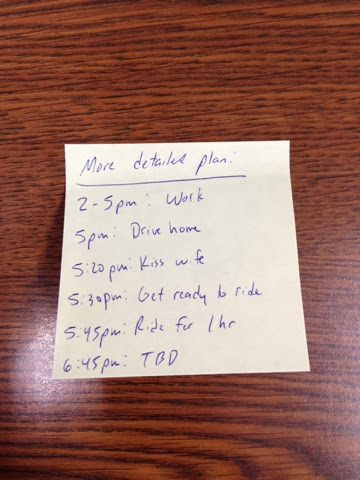 More detailed plan:
2-5pm: Work
5pm: Drive home
5:20pm: Kiss wife
5:30pm: Get ready to ride
5:45pm: Ride for 1hr
6:45pm: TBD